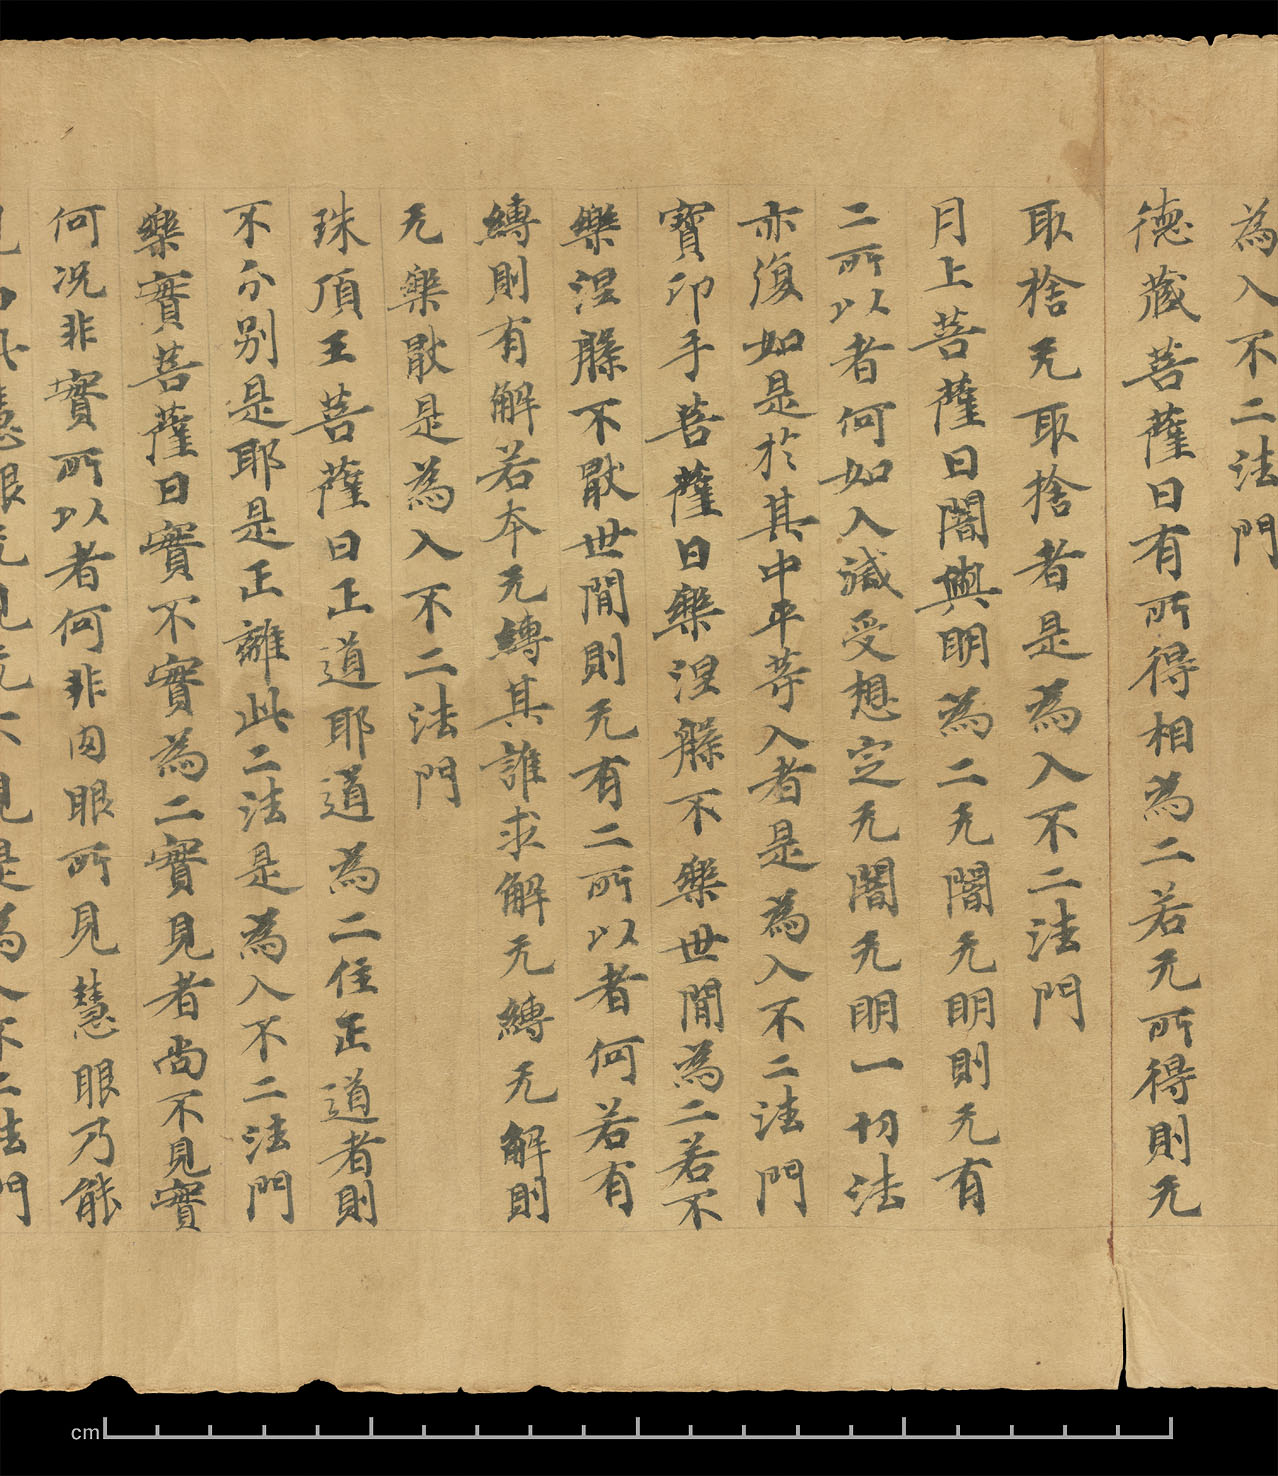 為入不二法門
德藏菩薩曰有所得相為二若无所得則无
取捨无取捨者是為入不二法門
月上菩薩曰闇與明為二无闇无明則无有
二所以者何如入滅受想定无闇无明一切法
亦復如是於其中平等入者是為入不二法門
寶印手菩薩曰樂涅槃不樂世間為二若不
樂涅槃不猒世間則无有二所以者何若有
縛則有解若本无縛其誰求解无縛无解則
无樂猒是為入不二法門
珠頂王菩薩曰正道耶道為二住正道者則
不分別是耶是正離此二法是為入不二法門
樂實菩薩曰實不實為二實見者尚不見實
何況非實所以者何非肉眼所見慧眼乃能
見而此慧眼无見无不見是為入不二法門
cm